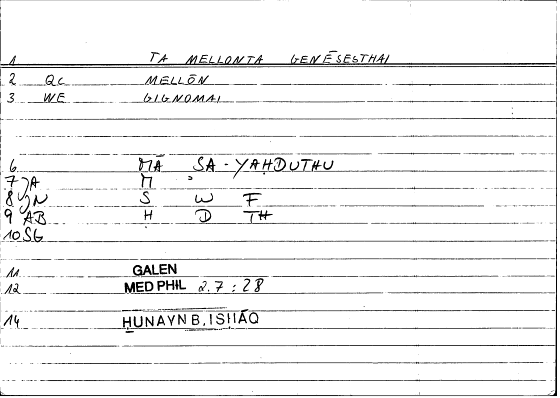 1 TA MELLONTA GENĒSESTHAI
2 QC MELLŌN
3 WE GIGNOMAI
6 MĀ SA-YAḤDUTHU
7 JA M
8 JN S W F
9 AB H D TH
10 SG
11 GALEN
12 MED PHIL 2.7:28
14 ḤUNAYN B. ISḤĀQ